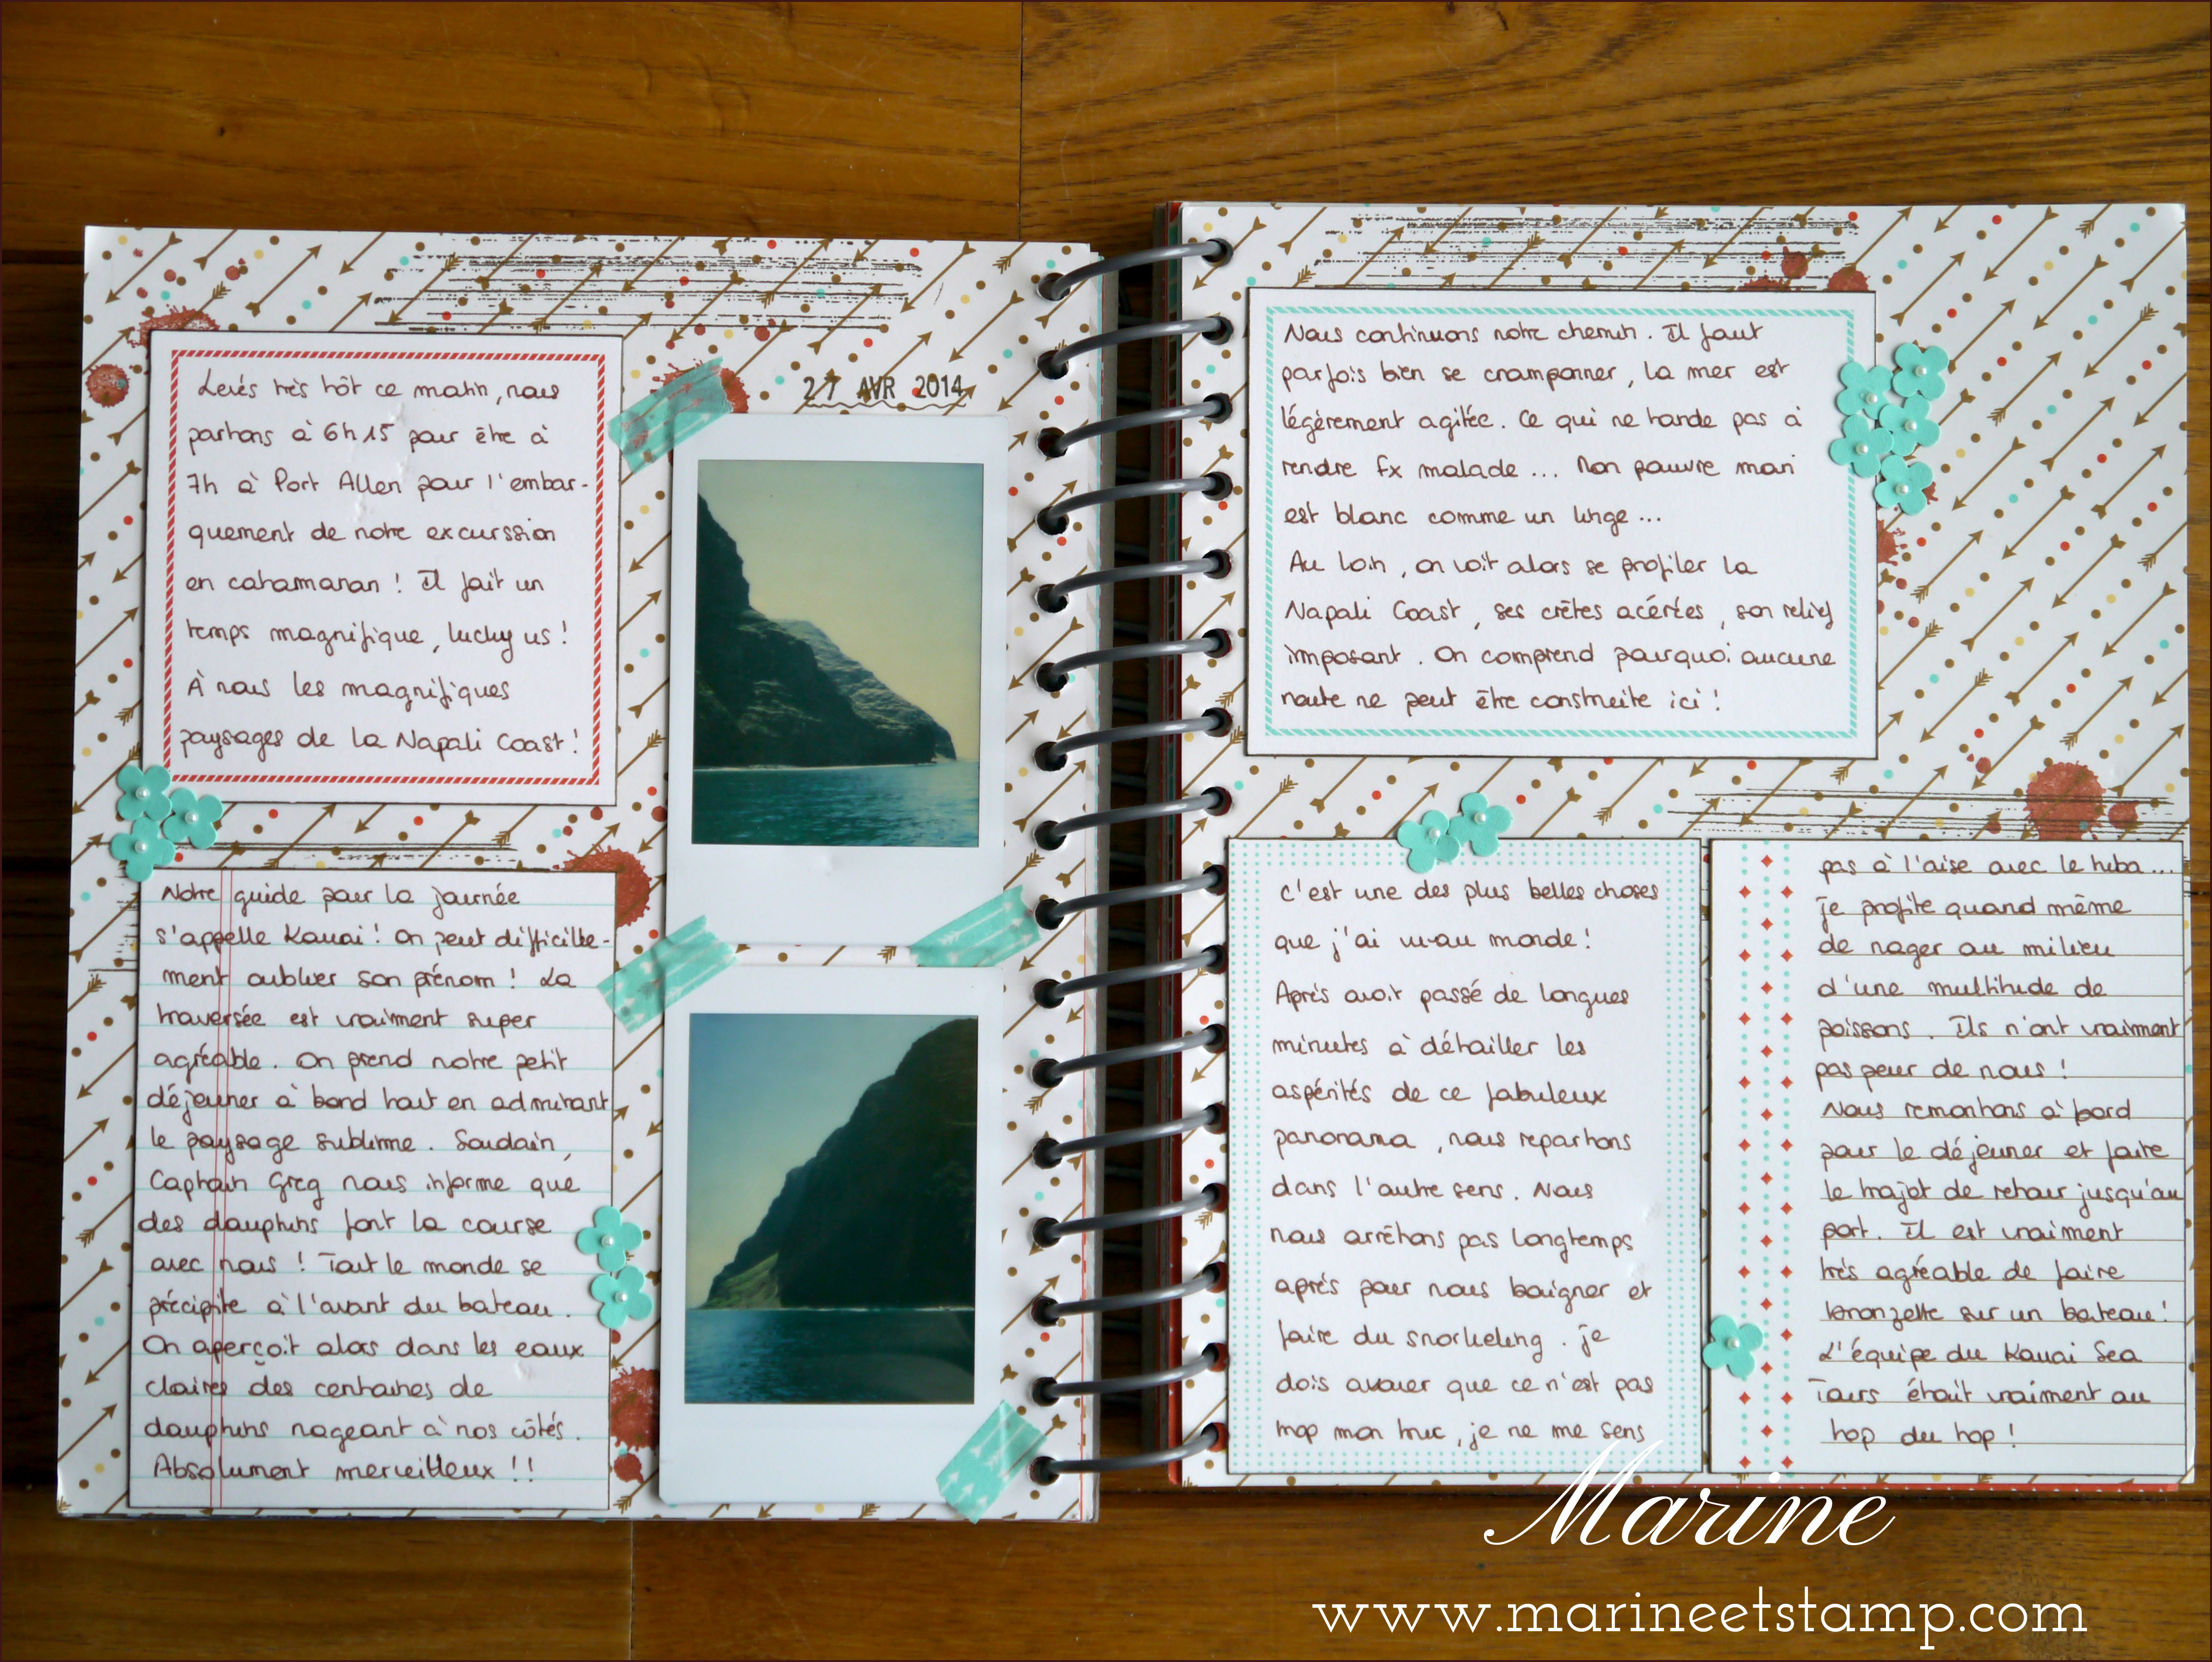 Levés très tôt ce matin, nous
partons à 6h15 pour être à
7h à Port Allen pour l'embar-
quement de notre excurssion
en cahamaran ! Il fait un
temps magnifique, lucky us !
À nous les magnifiques
paysages de la Napali Coast !
Notre guide pour la journée
s'appelle Kauai ! On peut difficille-
ment oublier son prénom ! La
traversée est vraiment super
agréable. On prend notre petit
déjeuner à bord tout en admirant
le paysage sublime. Soudain,
Captain Greg nous informe que
des dauphins font la course
avec nous ! Tout le monde se
précipite à l'avant du bateau.
On aperçoit alors dans les eaux
claires des centaines de
dauphins nageant à nos côtés.
Absolument merveilleux !!
27 AVR 2014
Nous continuons notre chemin. Il faut
parfois bien se cramponner, la mer est
légèrement agitée. Ce qui ne tarde pas à
rendre Fx malade... Mon pauvre mari
est blanc comme un linge...
Au loin, on voit alors se profiler la
Napali Coast, ses crêtes acérées, son relief
imposant. On comprend pourquoi aucune
route ne peut être construite ici !
C'est une des plus belles choses
que j'ai vu au monde !
Après avoir passé de longues
minutes à détailler les
aspérités de ce fabuleux
panorama, nous repartons
dans l'autre sens. Nous
nous arrêtons pas longtemps
après pour nous baigner et
faire du snorkeling. je
dois avouer que ce n'est pas
trop mon truc, je ne me sens
pas à l'aise avec le tuba...
Je profite quand même
de nager au milieu
d'une multitude de
poissons. Ils n'ont vraiment
pas peur de nous !
Nous remontons à bord
pour le déjeuner et faire
le trajet de retour jusqu'au
port. Il est vraiment
très agréable de faire
bronzette sur un bateau !
L'équipe du Kauai Sea
Tours était vraiment au
top du top !
Marine
www.marineetstamp.com